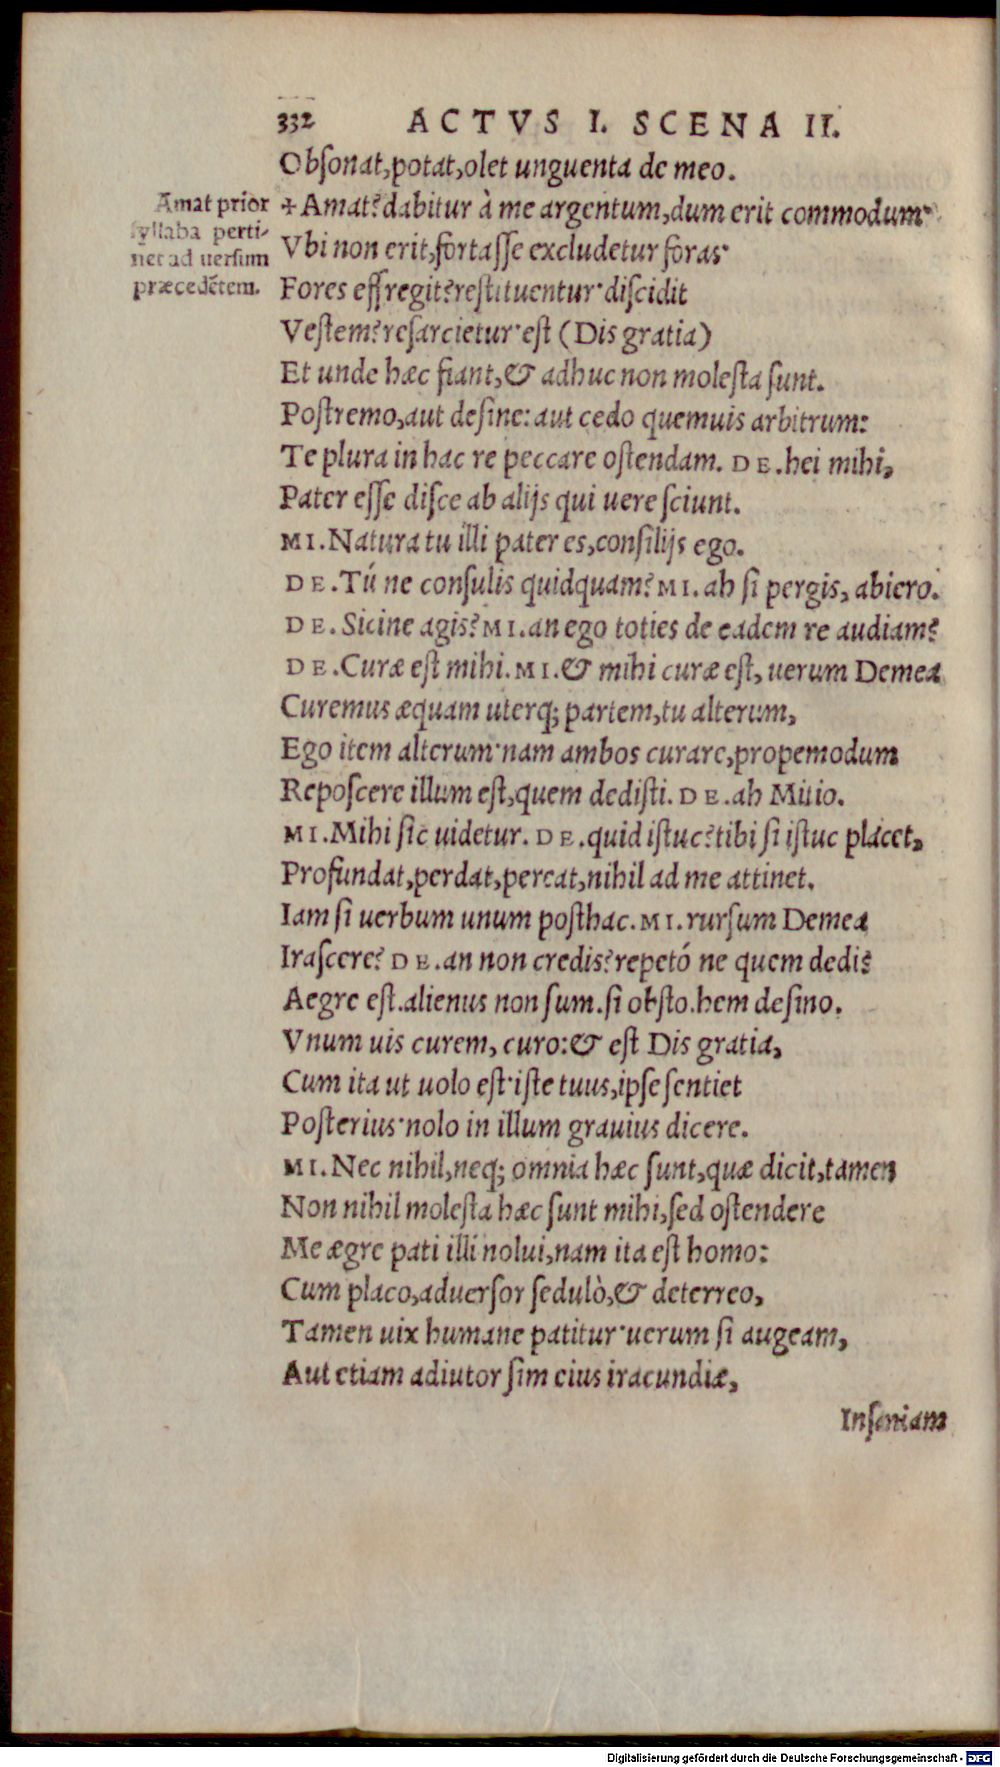 332 ACTVS I. SCENA II.
Obsonat, potat, olet unguenta de meo.
Amat prior
syllaba perti-
net ad uersum
præcedētem.
✢ Amat? dabitur à me argentum, dum erit commodum·
Vbi non erit, fortasse excludetur foras·
Fores effregit? restituentur· discidit
Vestem? resarcietur· est (Dis gratia)
Et unde hæc fiant, & adhuc non molesta sunt.
Postremo, aut desine: aut cedo quemuis arbitrum:
Te plura in hac re peccare ostendam. DE. hei mihi,
Pater esse disce ab alijs qui uere sciunt.
MI. Natura tu illi pater es, consilijs ego.
DE. Tú ne consulis quidquam? MI. ah si pergis, abiero.
DE. Sicine agis? MI. an ego toties de eadem re audiam?
DE. Curæ est mihi. MI. & mihi curæ est, uerum Demea
Curemus æquam uterq; partem, tu alterum,
Ego item alterum· nam ambos curare, propemodum
Reposcere illum est, quem dedisti. DE. ah Mitio.
MI. Mihi sic uidetur. DE. quid istuc? tibi si istuc placet,
Profundat, perdat, pereat, nihil ad me attinet.
Iam si uerbum unum posthac. MI. rursum Demea
Irascere? DE. an non credis? repetó ne quem dedi?
Aegre est. alienus non sum. si obsto. hem desino.
Vnum uis curem, curo: & est Dis gratia,
Cum ita ut uolo est· iste tuus, ipse sentiet
Posterius· nolo in illum grauius dicere.
MI. Nec nihil, neq; omnia hæc sunt, quæ dicit, tamen
Non nihil molesta hæc sunt mihi, sed ostendere
Me ægre pati illi nolui, nam ita est homo:
Cum placo, aduersor sedulò, & deterreo,
Tamen uix humane patitur· uerum si augeam,
Aut etiam adiutor sim eius iracundiæ,
Inseniam
Digitalisierung gefördert durch die Deutsche Forschungsgemeinschaft - DFG